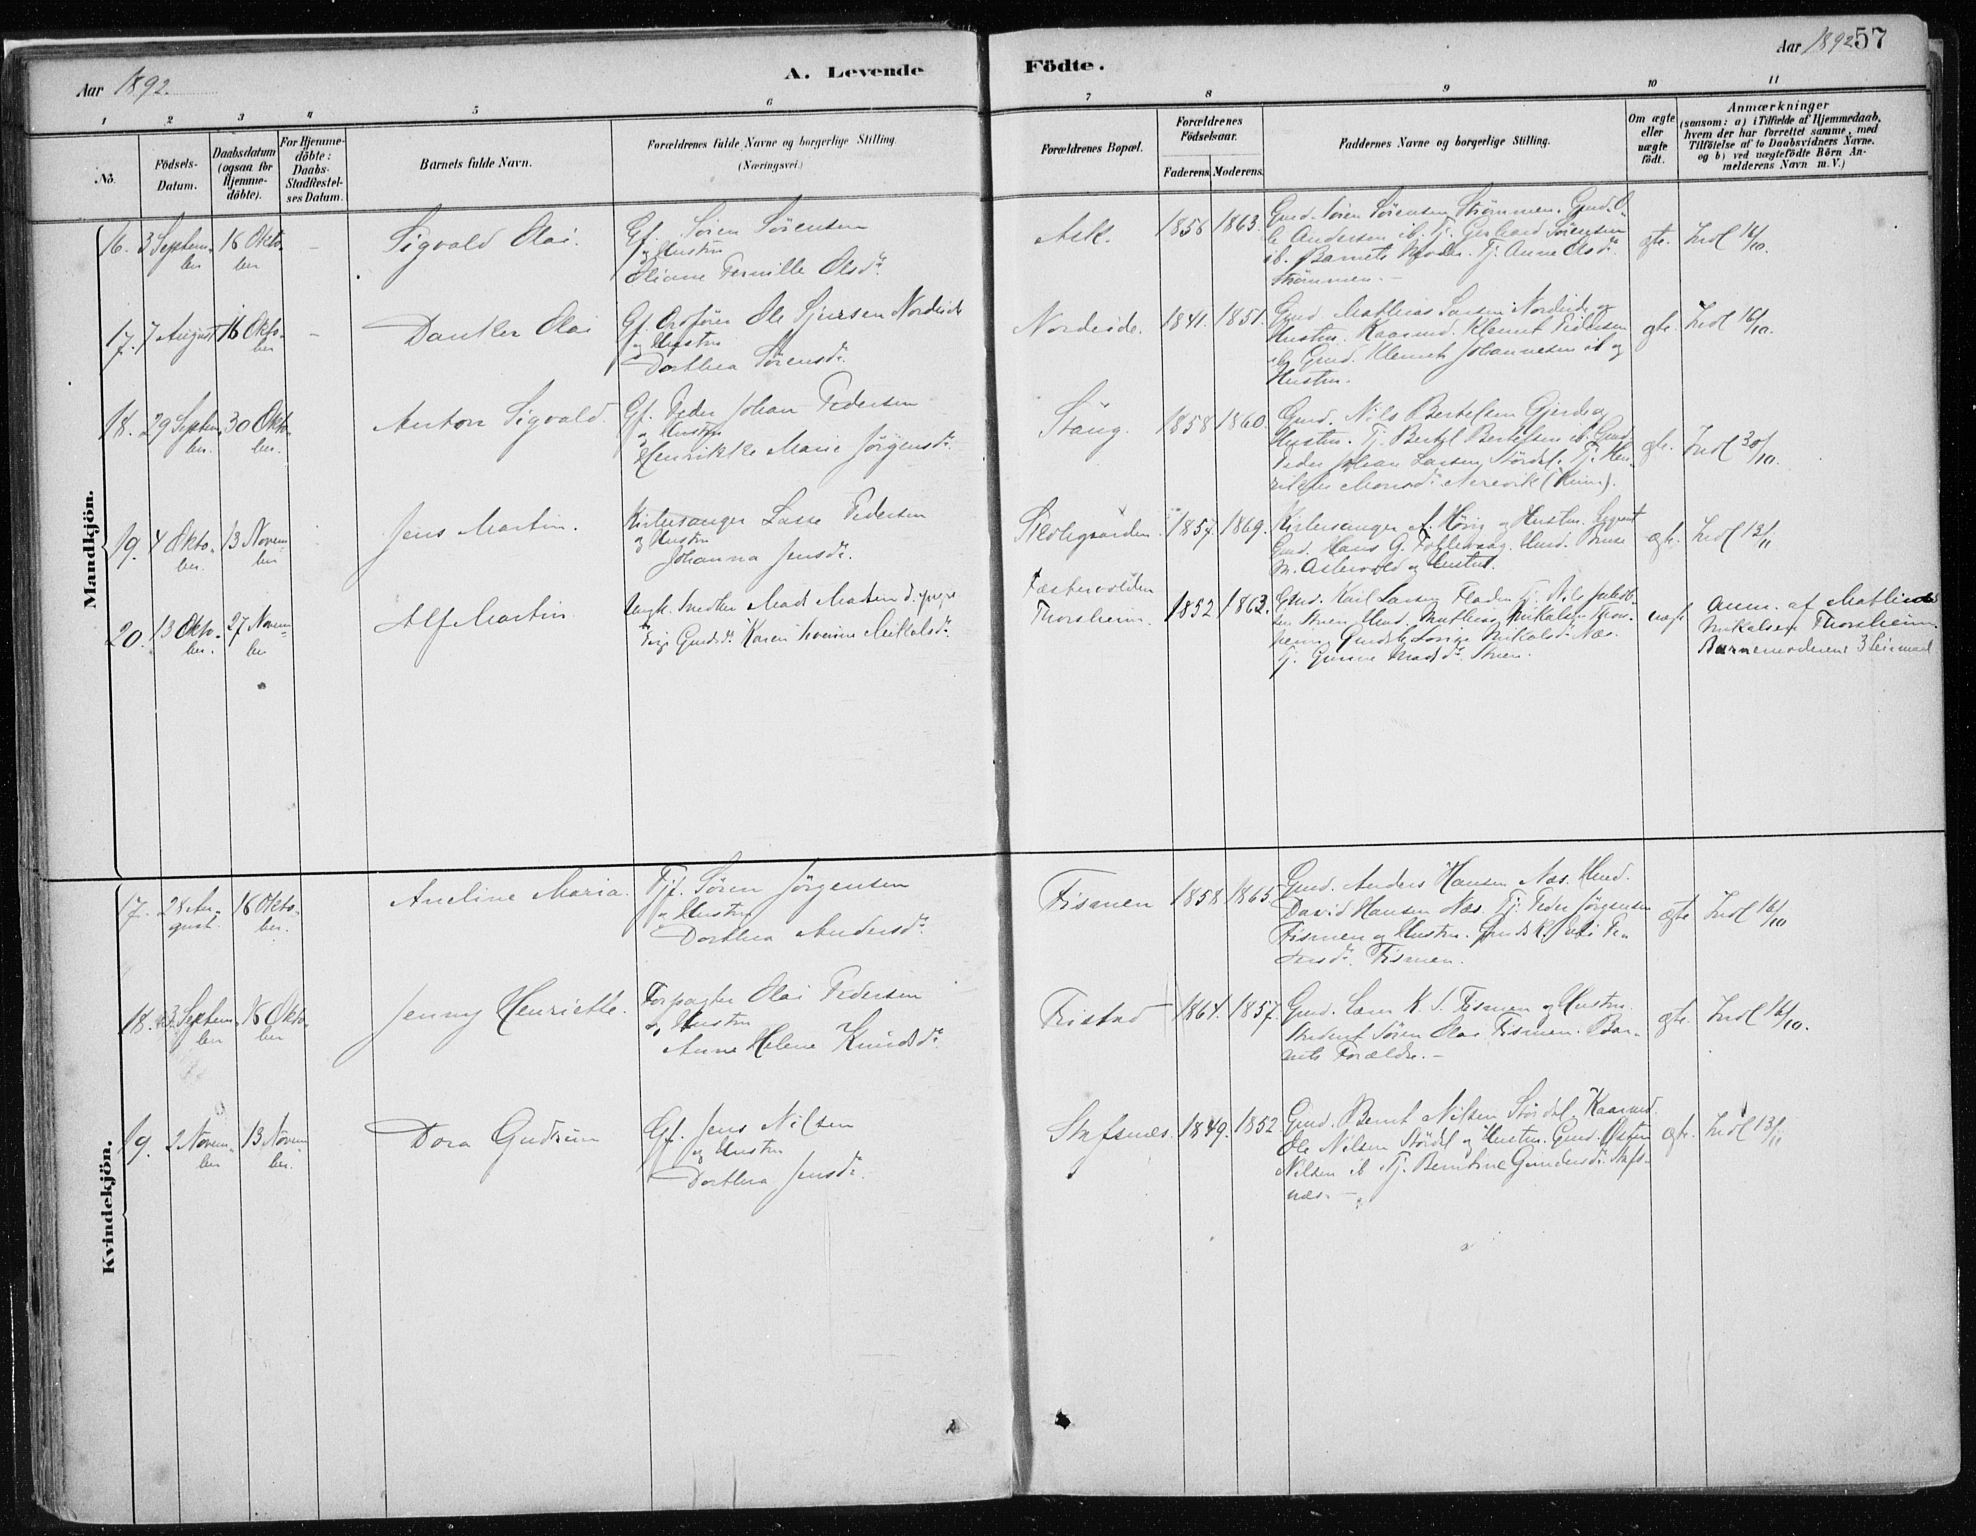 Aar 1892.
A. Levende
Födte.
Aar 1892 57
1 2 3 4 5 6 7 8 9 10 11
No.
Födsels-
Datum.
Daabsdatum
(ogsaa for
Hjemme-
döbte).
For Hjemme-
döbte:
Daabs-
Stadfæstel-
ses Datum.
Barnets fulde Navn.
Forældrenes fulde Navne og borgerlige Stilling
(Næringsvei.)
Forældrenes Bopæl.
Forældrenes
Födselsaar.
Faderens. Moderens.
Faddernes Navne og borgerlige Stilling.
Om ægte
eller
uægte
födt.
Anmærkninger
(saasom: a) i Tilfælde af Hjemmedaab,
hvem der har forrettet samme, med
Tilföielse af to Daabsvidners Navne.
og b) ved uægtefödte Börn An-
melderens Navn m. V.)
Mandkjön.
16. 3 Septem-
ber
16 Okto
ber
–
Sigvald Olai.
Gf. Sören Sörensen
og Hustru
Oliane Pernille Olsdr.
Ask.
1856 1863.
Gmd. Sören Sörensen Strömmen. Gmd. O-
le Andersen ib. Tj. Gerhard Sörensen
ib. Barnets Moder. Tj. Anne Olsdr
Strömmen. –
gte. Indl 16/10.
17. 7 August
16 Okto-
ber
–
Danker Olai
Gf. Ole Sjursen Nordeide
og Hustru
Dorthea Sörensdr.
Nordeide.
1841. 1851.
Gmd. Mathias Larsen Nordeide og
Hustru. Kaarmd. Klemet Pedersen
Gmd. Klemet Johannesen ib og
Hustru.
gte. Indl 16/10.
18. 29 Septem-
ber.
30 Okto-
ber.
Anton Sigvald.
Gf. Peder Johan Pedersen
og Hustru
Henrikke Marie Jörgensdr.
Stang.
1858 1860.
Gmd. Nils Bertelsen Gjerde og
Hustru. Tj. Bertel Bertelsen ib. Gmd
Peder Johan Larsen Stördel. Tj. Hen-
rikke Monsdr. Nerevik (Kinn).
gte. Indl 30/10.
19. 4 Okto-
ber.
13 Novem-
ber
Jens Martin.
Kirkesanger Lasse Pedersen
og Hustru
Johanna Jensdr.
1857. 1869.
Kirkesanger A. Hövig og Hustru.
Gmd. Hans G. Follevaag.
M. Askevold og Hustru.
ægte. Indl 13/11
20. 13 Okto-
ber.
27 Novem-
ber
Alf Martin
Ungk. Snedker Mads Madsen d. yngre
Pige Karen Mikalsdr.
Thorsheim.
1852 1863.
Gmd. Karl Larsen
Mathias Mikalsen Thors-
heim. Mikalsdr. Næs.
Tj. Gunne Madsdr.
uægte
Anm. af Mathias
Mikalsen Thorsheim.
Barnemoderens 3 Leiermaal
Kvindekjön.
17. 28 Au-
gust.
16 Okto-
ber.
Aneline Maria.
Tjf. Sören Jörgensen
og Hustru
Dorthea Andersdr.
Fismen
1858 1865.
Gmd. Anders Hansen Næs. Gmd.
David Hansen Næs. Tj. Peder Jörgensen
Fismen og Hustru. Pe-
dersdr. Fismen.
ægte Indl 16/10
18. 3 Septem-
ber
16 Okto-
ber
Jenny Henriette.
Forpagter Olai Pedersen
og Hustru
Anne Helene Knudsdr.
Fristad
1864. 1857.
Gmd. Lars K. S. Fismen og Hustru.
Student Sören Olai Fismen. Bar-
nets Forældre. –
gte. Indl 16/10.
19. 2 Novem-
ber
13 Novem-
ber.
Dora Gudrun
Gf. Jens Nilsen
og Hustru
Dorthea Jensdr.
Stafsnæs.
1849. 1852
Gmd. Bernt Nilsen Stördal. Kaarmd.
Ole Nilsen Stördal og Hustru. Gmd. Osten
Nilsen ib. Tj. Berntine Gundersdr. Stafs-
næs. –
gte. Indl 13/11